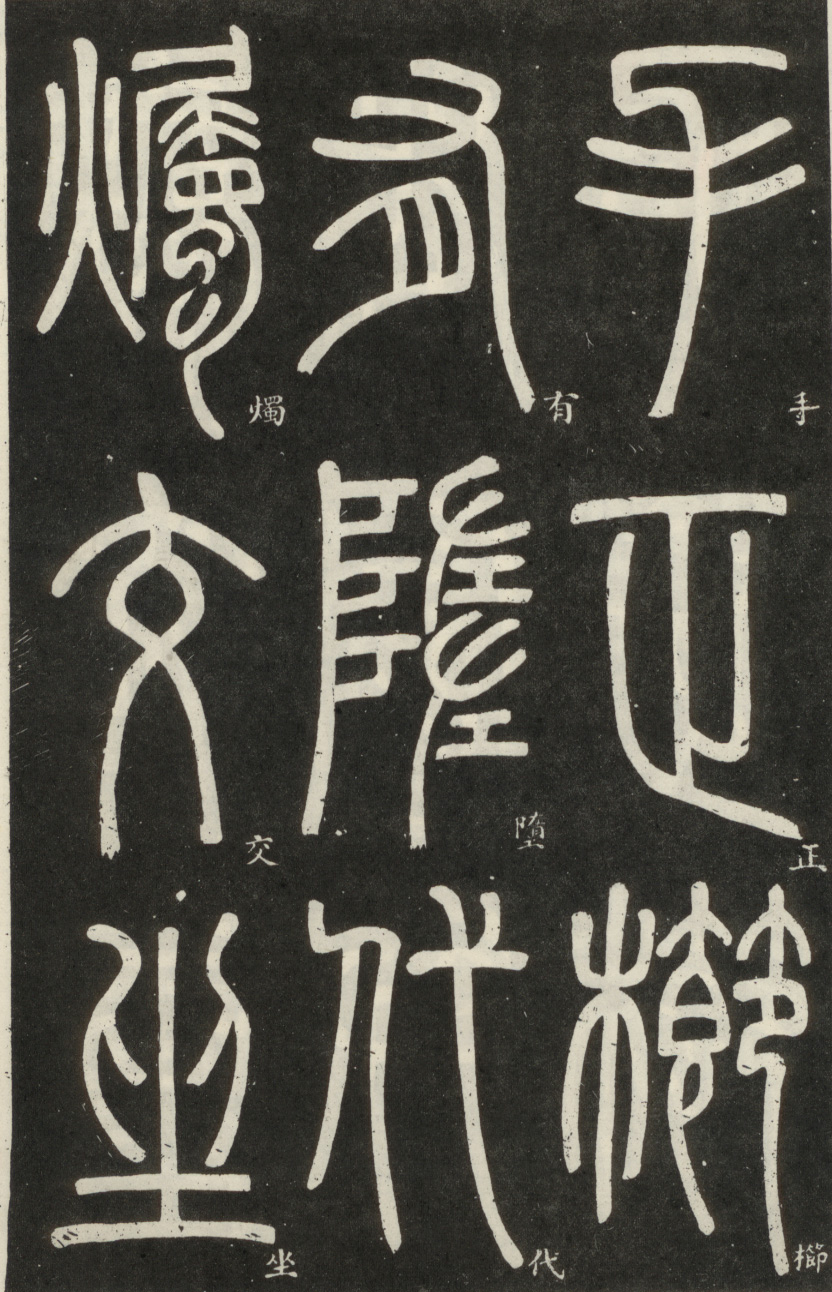 手正櫛
有墮代
燭交坐